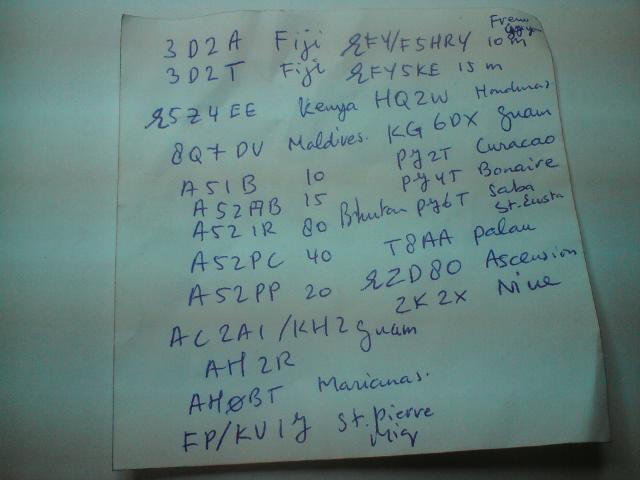 3D2A Fiji
3D2T Fiji
5Z4EE Kenya
8Q7DV Maldives.
A51B 10
A52AB 15
A521R 80 Bhutan
A52PC 40
A52PP 20
AC2AI/KH2 Guam
AH2R
AHØBT Marianas.
FP/KV1J St. Pierre
Miq
FY/F5HRY 10m
FY5KE 15m
HQ2W Honduras
KG6DX Guam
PJ2T Curacao
PJ4T Bonaire
PJ6T Saba
St. Eusta
T8AA Palau
ZD80 Ascension
ZK2X Niue